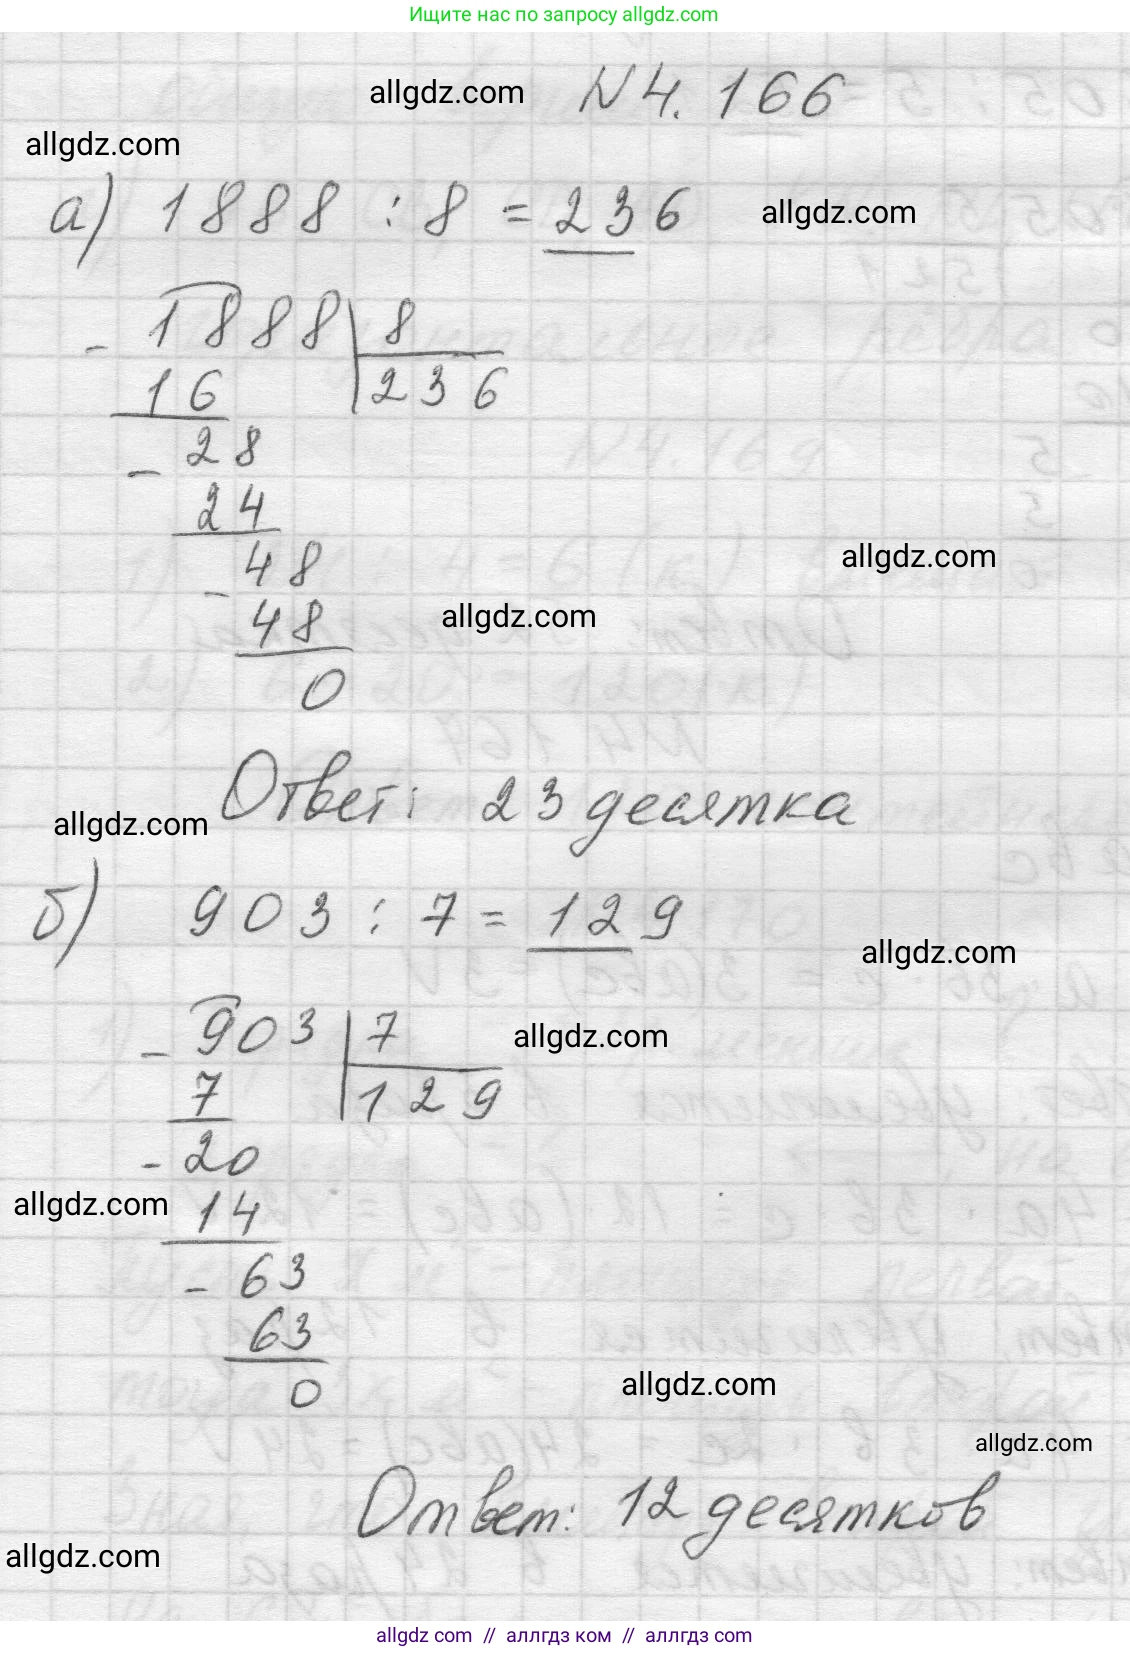 Ищите нас по запросу allgdz.com
allgdz.com
N 4.166
allgdz.com
а) 1888 : 8 = 236
allgdz.com
- 1888 | 8
16 | 236
- 28
24
allgdz.com
- 48
48
allgdz.com
0
Ответ: 23 десятка
allgdz.com
б) 903 : 7 = 129
allgdz.com
- 903 | 7
allgdz.com
7 | 129
- 20
allgdz.com
14
- 63
63
allgdz.com
0
allgdz.com
Ответ: 12 десятков
allgdz.com
allgdz com // аллгдз ком // аллгдз com